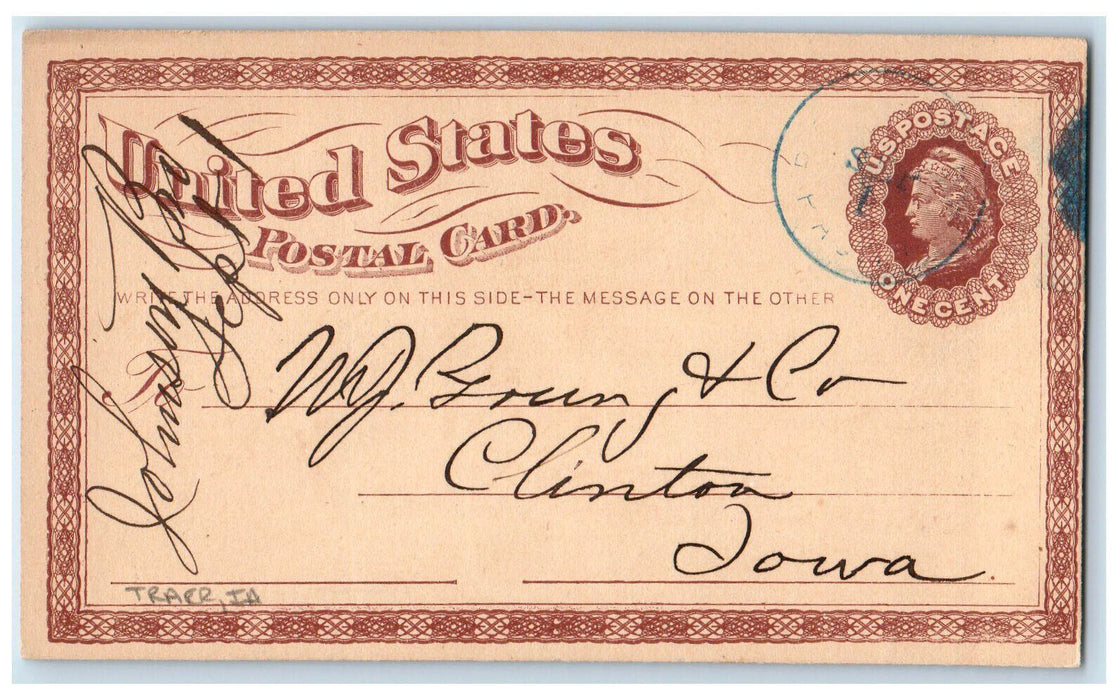 United States
POSTAL CARD.
U.S. POSTAGE
ONE CENT
WRITE THE ADDRESS ONLY ON THIS SIDE-THE MESSAGE ON THE OTHER
W.J. Young & Co
Clinton
Iowa
Johnson Bro
Sept 1
TRAER, IA